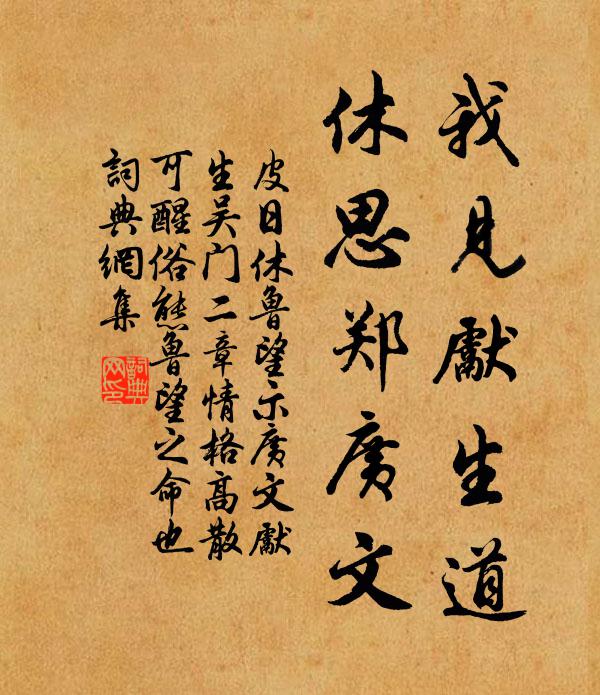 我見獻生道
休思郑廣文
皮日休魯望示廣文獻
生吴门二章情格高散
可醒俗態魯望之命也
詞典網集
詞典
网印